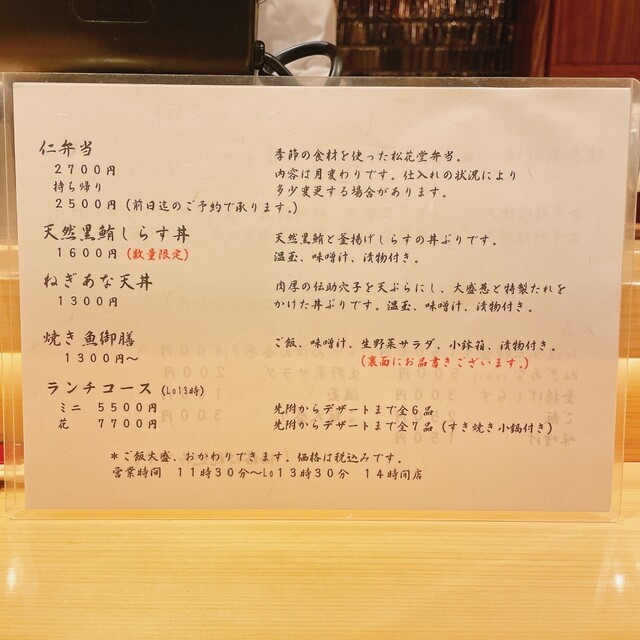 仁弁当
2700円
季節の食材を使った松花堂弁当。
内容は月変わりです。仕入れの状況により
多少変更する場合があります。
持ち帰り
2500円(前日迄のご予約で承ります。)
天然黒鮪しらす丼
1600円(数量限定)
天然黒鮪と釜揚げしらすの丼ぶりです。
温玉、味噌汁、漬物付き。
ねぎあな天丼
1300円
肉厚の伝助穴子を天ぷらにし、大盛葱と特製たれを
かけた丼ぶりです。温玉、味噌汁、漬物付き。
焼き魚御膳
1300円～
ご飯、味噌汁、生野菜サラダ、小鉢箱、漬物付き。
(裏面にお品書きございます。)
ランチコース(Lo13時)
ミニ 5500円
先附からデザートまで全6品
花 7700円
先附からデザートまで全7品(すき焼き小鍋付き)
*ご飯大盛、おかわりできます。価格は税込みです。
営業時間 11時30分～Lo13時30分 14時閉店